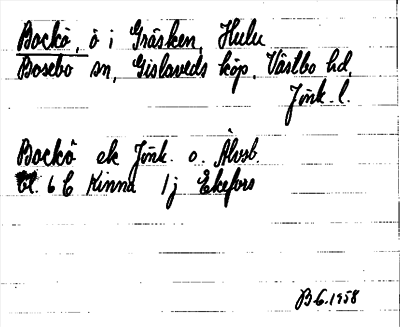 Bockö, ö i Gräsken, Hulu
Bosebo sn, Gislaveds köp. Västbo hd,
Jönk. l.
Bockö ek Jönk. o. Älvsb.
bl. 6 C Kinna 1 j Ekefors
B G. 1958